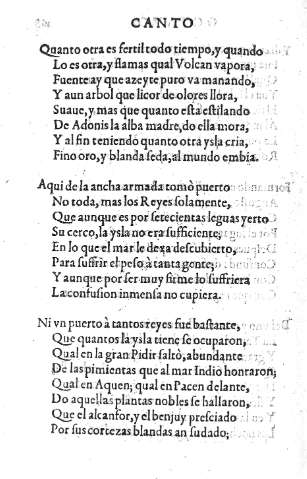 CANTO
Quanto otra es fertil todo tiempo, y quando
Lo es otra, y flamas qual Volcan vapora,
Fuente ay que azeyte puro va manando,
Y aun arbol que licor de olores llora,
Suaue, y mas que quanto està estilando
De Adonis la alba madre, do ella mora,
Y al fin teniendo quanto otra ysla cria,
Fino oro, y blanda seda, al mundo embia.
Aqui de la ancha armada tomò puerto
No toda, mas los Reyes solamente,
Que aunque es por setecientas leguas yerto
Su cerco, la ysla no era sufficiente,
En lo que el mar le dexa descubierto,
Para suffrir el peso à tanta gente;
Y aunque por ser muy firme lo suffriera
La confusion inmensa no cupiera.
Ni vn puerto à tantos reyes fue bastante,
Que quantos la ysla tiene se ocuparon,
Qual en la gran Pidir saltò, abundante
De las pimientas que al mar Indio honraron;
Qual en Aquen; qual en Pacen delante,
Do aquellas plantas nobles se hallaron,
Que el alcanfor, y el benjuy presciado
Por sus cortezas blandas an sudado;